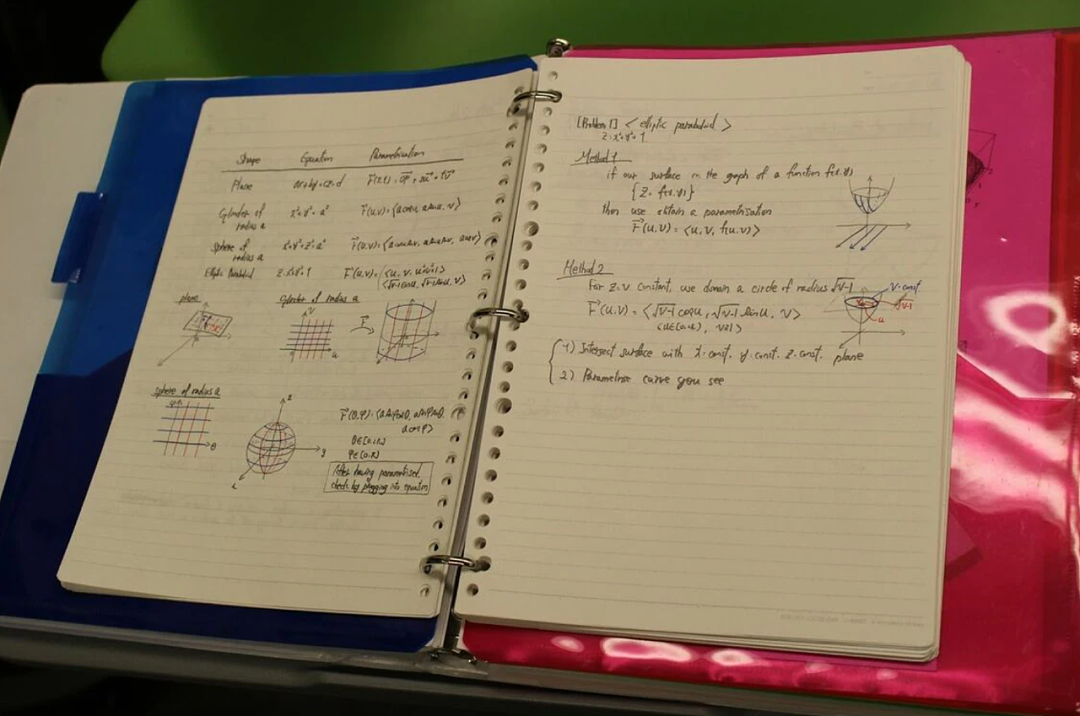 Shape Equation Parametrisation
Plane ax+by+cz=d r⃗(s,t) = OP⃗ + su⃗ + tv⃗
Cylinder of radius a x²+y²=a² r⃗(u,v) = ⟨a cosu, a sinu, v⟩
Sphere of radius a x²+y²+z²=a² r⃗(u,v) =
Elliptic Paraboloid z=x²+y²+1 r⃗(u,v) = ⟨u, v, u²+v²+1⟩
⟨√v-1 cosu, √v-1 sinu, v⟩
plane
cylinder of radius a
v
u
r⃗
sphere of radius a
θ
z
y
x
r⃗(θ,φ) = ⟨a sinφ cosθ, a sinφ sinθ,
a cosφ⟩
θ∈[0,2π]
φ∈[0,π]
After having parametrised,
check by plugging into equation
[Problem 1] < elliptic paraboloid >
z=x²+y²+1
Method 1
if our surface is the graph of a function f(x,y)
{z=f(x,y)}
then use obtain a parametrisation
r⃗(u,v) = ⟨u, v, f(u,v)⟩
Method 2
For z=v constant, we domain a circle of radius √v-1
r⃗(u,v) = ⟨√v-1 cosu, √v-1 sinu, v⟩
(u∈[0,2π], v≥1)
v=const
√v-1
u
1) Intersect surface with x=const. y=const. z=const. plane
2) Parametrise curve you see